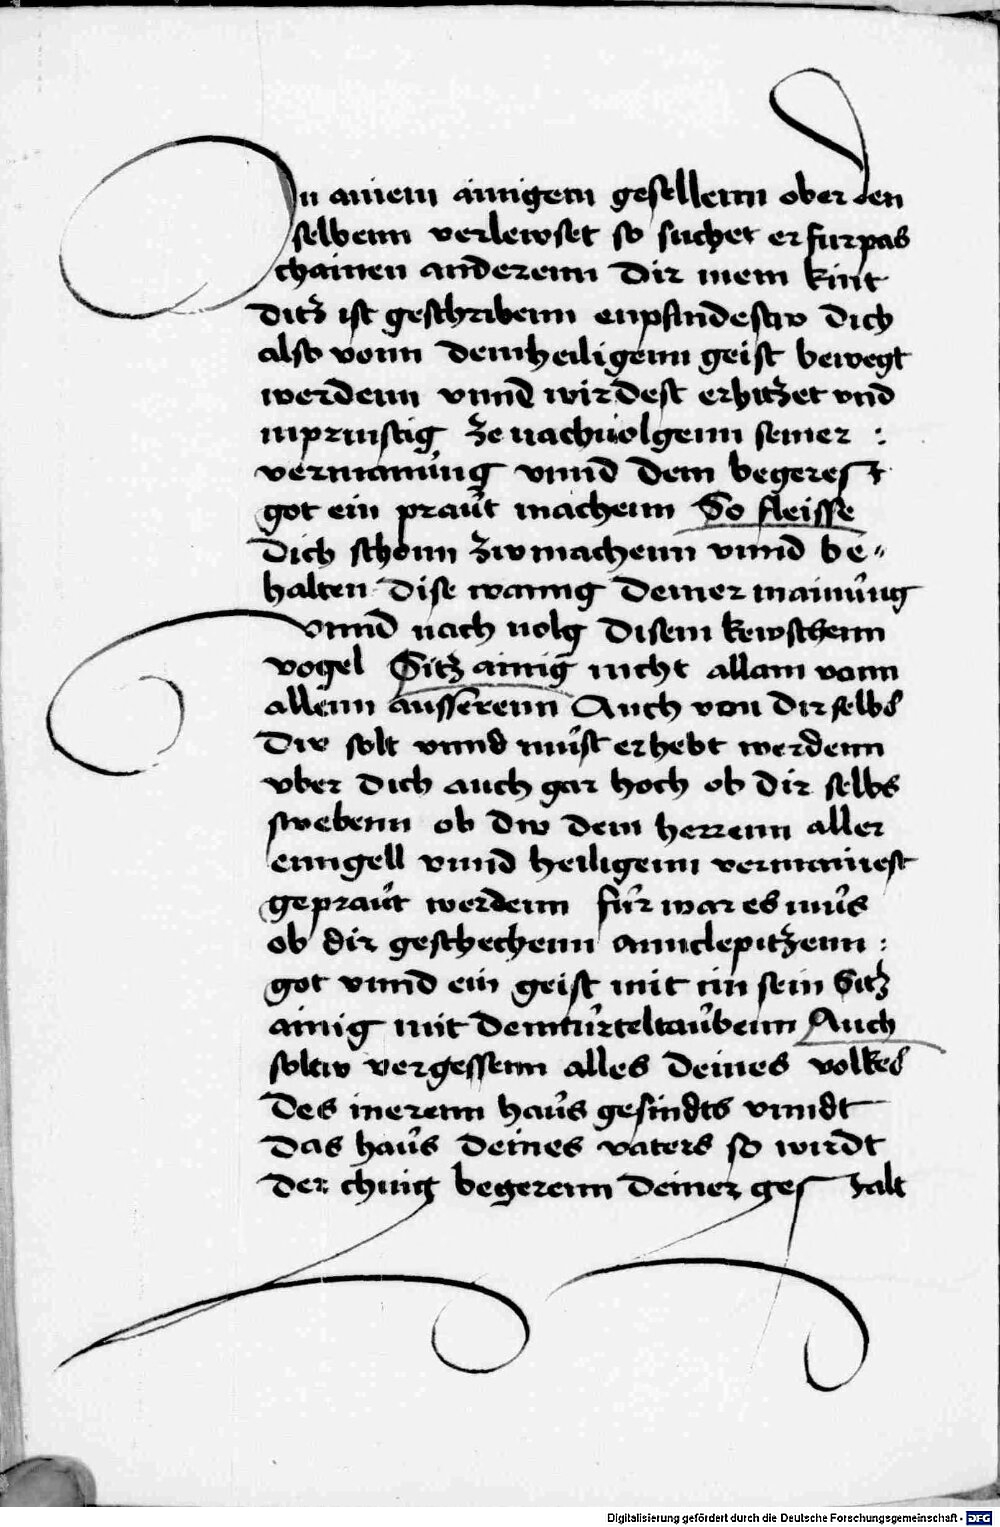 n ainem ainigem gesellenn ober den
selbenn verlewset so suchet er furpas
chainen anderenn Dir mein kint
ditz ist geschribenn enpfindestw dich
also vonn dem heiligenn geist bewegt
werdenn vnnd wirdest erhitzet vnd
inprinstig ze nachuolgenn seiner :
vermanũng vnnd dem begerest
got ein praũt machenn So fleisse
dich schonn zw machenn vnnd be"
halten dise wanng deiner mainũng
vnnd nach uolg disem kewschenn
vogel Sitz ainig nicht allain vonn
allenn ausserenn Auch von dir selbs
Dw solt vnnd mũst erhebt werdenn
vber dich auch gar hoch ob dir selbs
swebenn ob dw dem herrenn aller
enngell vnnd heiligenn vermainest
gepraũt werdenn fũr war es mũs
ob dir geschechenn annclepitzenn :
got vnnd ein geist mit im sein Sitz
ainig mit dem tũrteltaũbenn Auch
soltw vergessenn alles deines volkes
des inerenn haũs gesindts vnndt
das haũs deines vaters so wirdt
der chunig begerenn deiner gestalt
Digitalisierung gefördert durch die Deutsche Forschungsgemeinschaft - DFG